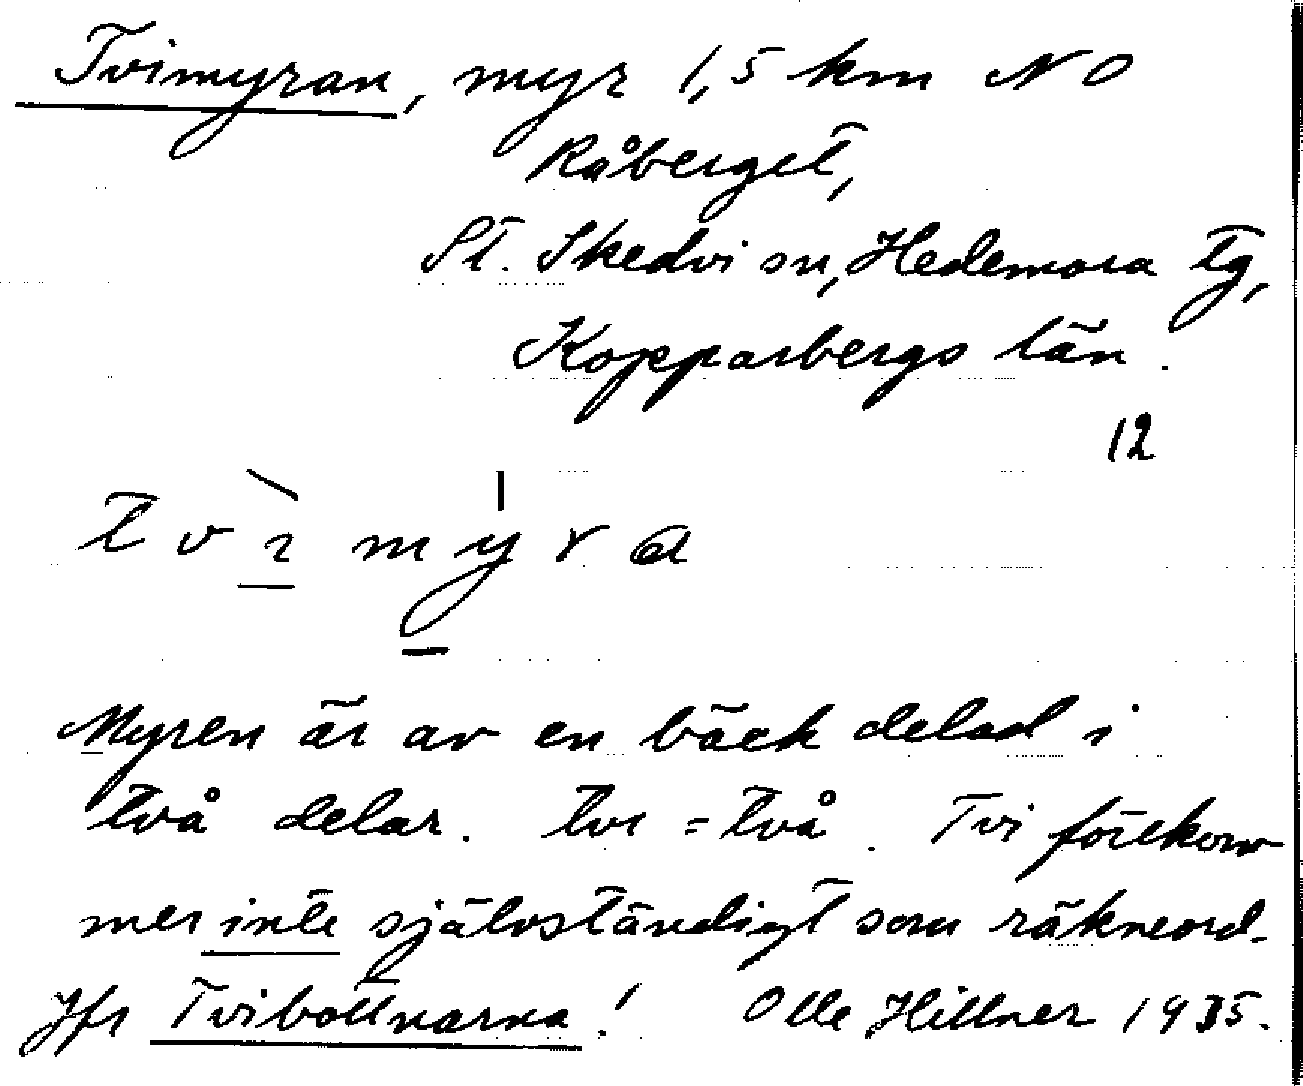 Tvimyran, myr 1,5 km NO
Råberget,
St. Skedvi sn, Hedemora tg,
Kopparbergs län.
12
tvı̀mýra
Myren är av en bäck delad i
två delar. tvi = två. Tvi förekom
mer inte självständigt som räkneord.
Jfr Tvibottnarna! Olle Hillner 1935.